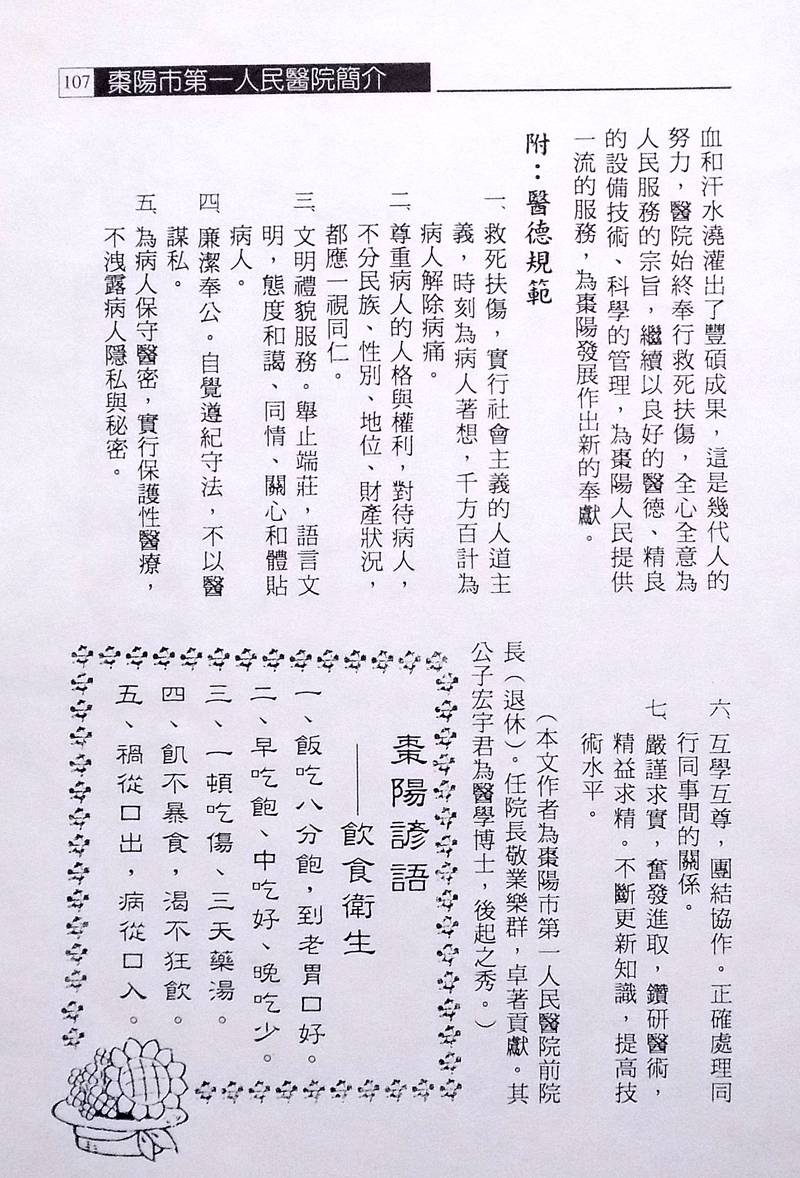 107 棗陽市第一人民醫院簡介
血和汗水澆灌出了豐碩成果，這是幾代人的
努力，醫院始終奉行救死扶傷，全心全意為
人民服務的宗旨，繼續以良好的醫德、精良
的設備技術、科學的管理，為棗陽人民提供
一流的服務，為棗陽發展作出新的奉獻。
附：醫德規範
一、救死扶傷，實行社會主義的人道主
義，時刻為病人著想，千方百計為
病人解除病痛。
二、尊重病人的人格與權利，對待病人，
不分民族、性別、地位、財產狀況，
都應一視同仁。
三、文明禮貌服務。舉止端莊，語言文
明，態度和藹、同情、關心和體貼
病人。
四、廉潔奉公。自覺遵紀守法，不以醫
謀私。
五、為病人保守醫密，實行保護性醫療，
不洩露病人隱私與秘密。
六、互學互尊，團結協作。正確處理同
行同事間的關係。
七、嚴謹求實，奮發進取，鑽研醫術，
精益求精。不斷更新知識，提高技
術水平。
（本文作者為棗陽市第一人民醫院前院
長（退休）。任院長敬業樂群，卓著貢獻。其
公子宏宇君為醫學博士，後起之秀。）
棗陽諺語
——飲食衛生
一、飯吃八分飽，到老胃口好。
二、早吃飽、中吃好、晚吃少。
三、一頓吃傷、三天藥湯。
四、飢不暴食，渴不狂飲。
五、禍從口出，病從口入。